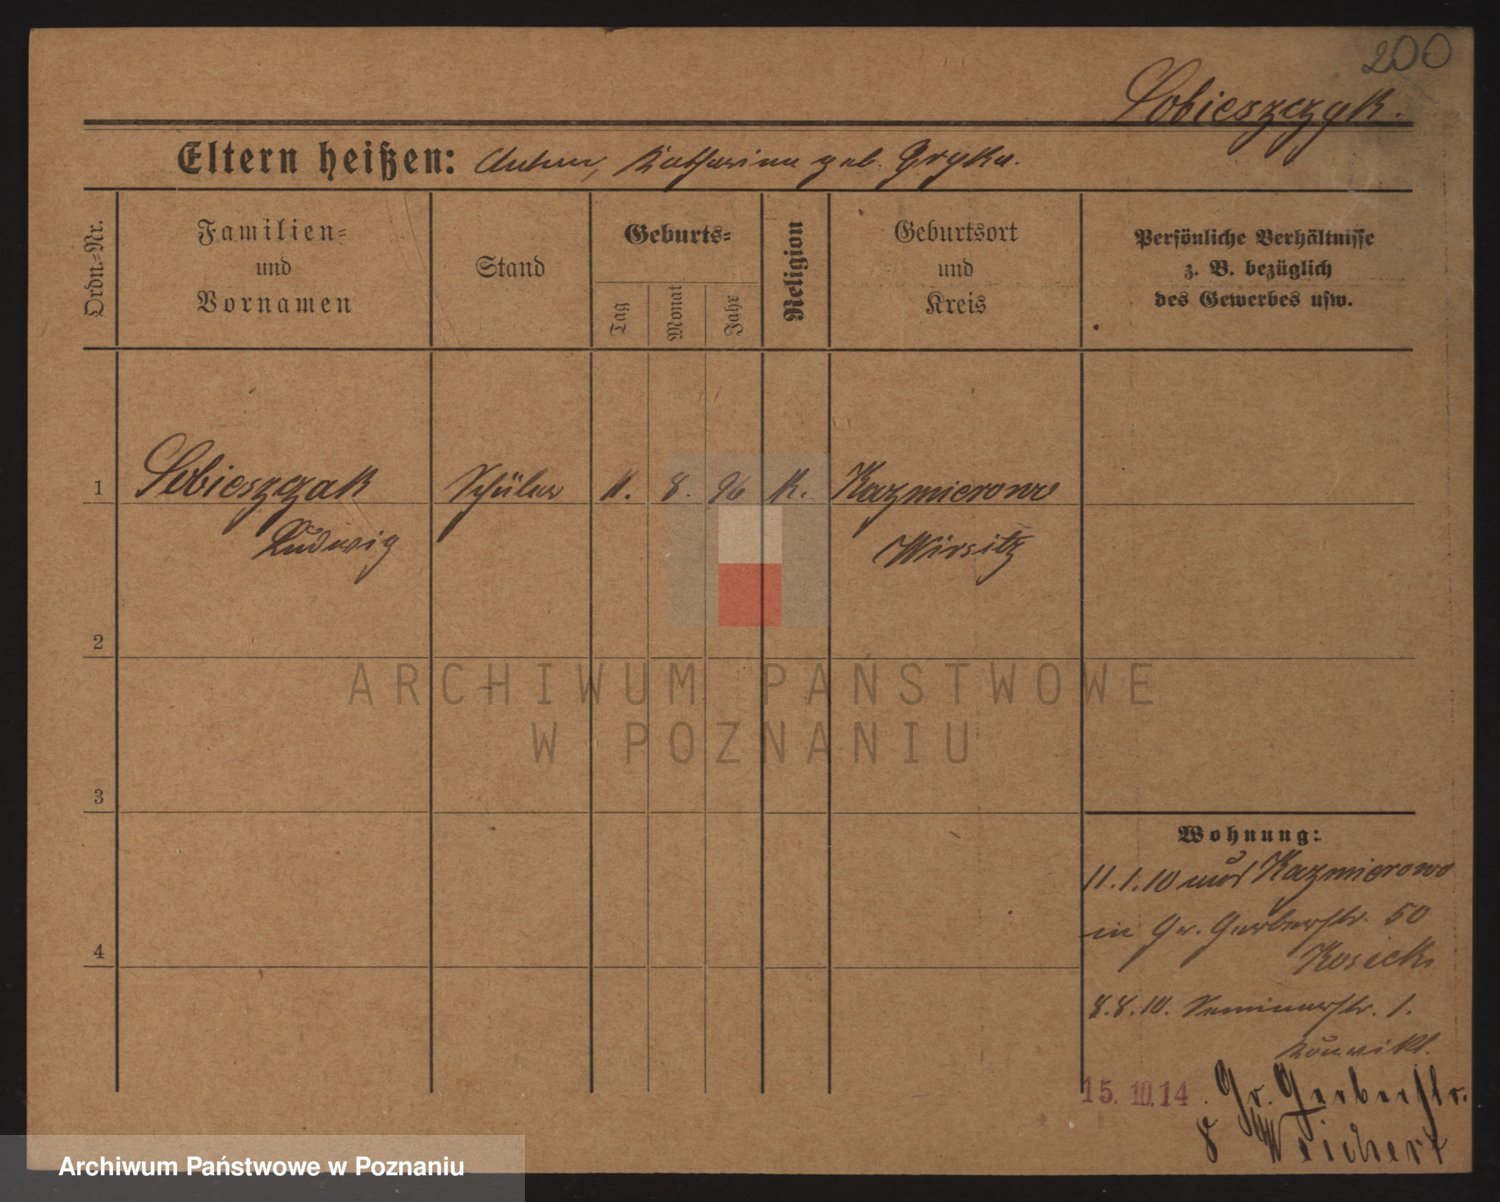 200
Sobieszczyk.
Eltern heißen: Anton, Katharina geb. Gryka.
Ordn.-Nr.
Familien- und Vornamen
Stand
Geburts-
Tag
Monat
Jahr
Religion
Geburtsort und Kreis
Persönliche Verhältnisse
z. B. bezüglich
des Gewerbes usw.
1 Sobieszczak Schüler 11. 8. 96 K. Kazmierowo
Ludwig Wirsitz
2
3
4
ARCHIWUM PAŃSTWOWE
W POZNANIU
Wohnung:
11.1.10 aus Kazmierowo
in Gr. Gerberstr. 50
Kosicki
8.8.10. Seminarstr. 1.
15.10.14. Gr. Gerberstr.
8 Weichert
Archiwum Państwowe w Poznaniu